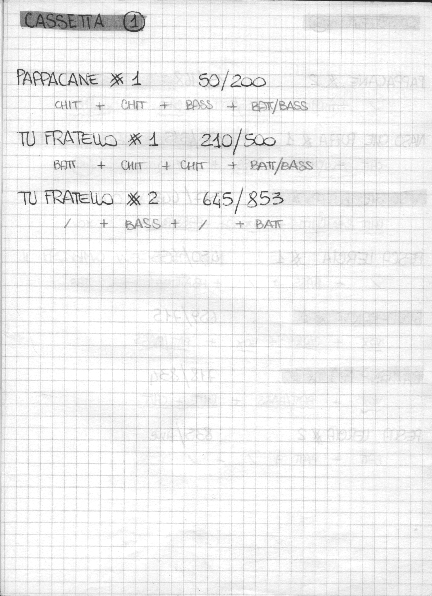 CASSETTA 1
PAPPACANE # 1 50/200
CHIT + CHIT + BASS + BATT/BASS
TU FRATELLO # 1 210/500
BATT + CHIT + CHIT + BATT/BASS
TU FRATELLO # 2 645/853
/ + BASS + / + BATT